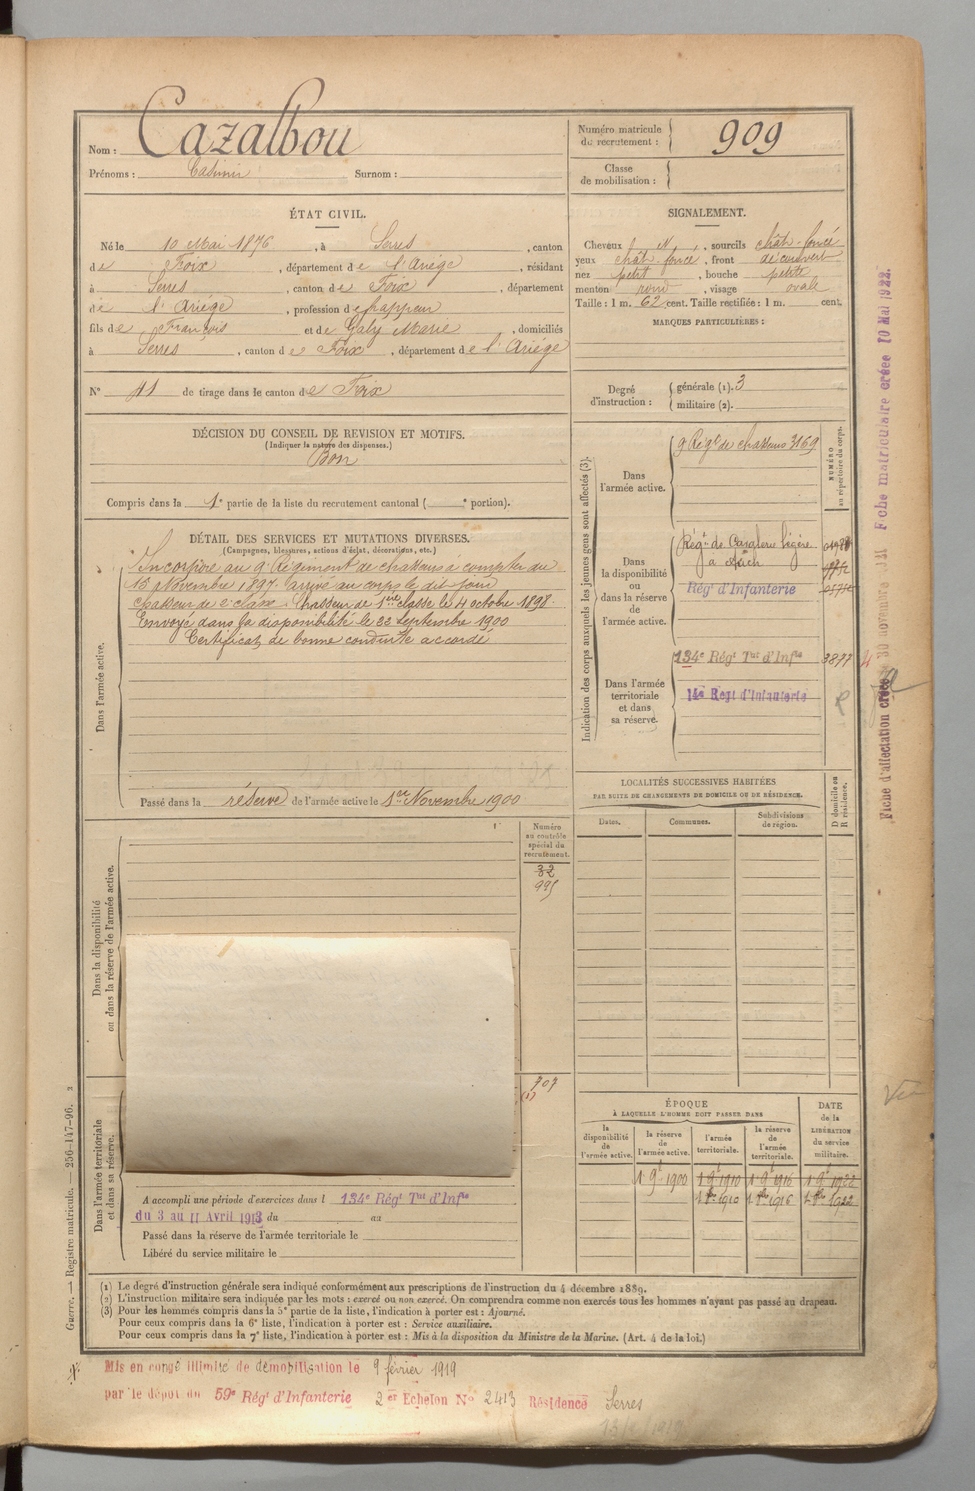 Nom : Cazalbou
Prénoms : Casimir Surnom :
Numéro matricule du recrutement : 909
Classe de mobilisation :
ÉTAT CIVIL.
Né le 10 Mai 1876, à Serres, canton
de Foix, département de l'Ariége, résidant
à Serres, canton de Foix, département
de l'Ariége, profession de frappeur
fils de François et de Galy Marie, domiciliés
à Serres, canton de Foix, département de l'Ariége
N° 41 de tirage dans le canton de Foix
SIGNALEMENT.
Cheveux N, sourcils chât-foncé
yeux chât-foncé, front découvert
nez petit, bouche petite
menton rond, visage ovale
Taille : 1 m. 62 cent. Taille rectifiée : 1 m. cent.
MARQUES PARTICULIÈRES :
Degré d'instruction : générale (1). 3
militaire (2).
DÉCISION DU CONSEIL DE REVISION ET MOTIFS.
(Indiquer la nature des dispenses.)
Bon
Compris dans la 1e partie de la liste du recrutement cantonal ( e portion).
DÉTAIL DES SERVICES ET MUTATIONS DIVERSES.
(Campagnes, blessures, actions d'éclat, décorations, etc.)
Dans l'armée active.
Incorporé au 9e Régiment de chasseurs à compter du
15 Novembre 1897. arrivé au corps le dit jour
chasseur de 2e classe. Chasseur de 1ère classe le 4 octobre 1898.
Envoyé dans la disponibilité le 22 septembre 1900
Certificat de bonne conduite accordé
Passé dans la réserve de l'armée active le 1er Novembre 1900
Indication des corps auxquels les jeunes gens sont affectés (3).
NUMÉRO au répertoire du corps.
Dans l'armée active.
9 Régt de chasseurs 3169
Dans la disponibilité ou dans la réserve de l'armée active.
Régt de Cavalerie légère
à Auch
Régt d'Infanterie
Dans l'armée territoriale et dans sa réserve.
134e Régt Tal d'Infie 3877
14e Regt d'Infanterie
LOCALITÉS SUCCESSIVES HABITÉES
PAR SUITE DE CHANGEMENTS DE DOMICILE OU DE RÉSIDENCE.
Dates. Communes. Subdivisions de région.
D domicile ou R résidence.
Dans la disponibilité ou dans la réserve de l'armée active.
Numéro au contrôle spécial du recrutement.
32
995
707
(1)
ÉPOQUE
À LAQUELLE L'HOMME DOIT PASSER DANS
la disponibilité de l'armée active.
la réserve de l'armée active.
l'armée territoriale.
la réserve de l'armée territoriale.
DATE de la LIBÉRATION du service militaire.
1 9e 1900 1 9e 1910 1 9e 1916 1 9e 1922
1910 1916 1922
Dans l'armée territoriale et dans sa réserve.
A accompli une période d'exercices dans l 134e Régt Tal d'Infie
du 3 au 11 Avril 1913 du au
Passé dans la réserve de l'armée territoriale le
Libéré du service militaire le
(1) Le degré d'instruction générale sera indiqué conformément aux prescriptions de l'instruction du 4 décembre 1889.
(2) L'instruction militaire sera indiquée par les mots : exercé ou non exercé. On comprendra comme non exercés tous les hommes n'ayant pas passé au drapeau.
(3) Pour les hommes compris dans la 5e partie de la liste, l'indication à porter est : Ajourné.
Pour ceux compris dans la 6e liste, l'indication à porter est : Service auxiliaire.
Pour ceux compris dans la 7e liste, l'indication à porter est : Mis à la disposition du Ministre de la Marine. (Art. 4 de la loi.)
Guerre. — Registre matricule. — 256-147-96.
Mis en congé illimité de démobilisation le 9 février 1919
par le dépot du 59e Régt d'Infanterie 2er Echelon No 2413 Résidence Serres
Fiche matriculaire créée 10 Mai 1922.
Fiche d'affectation créée 30 novembre